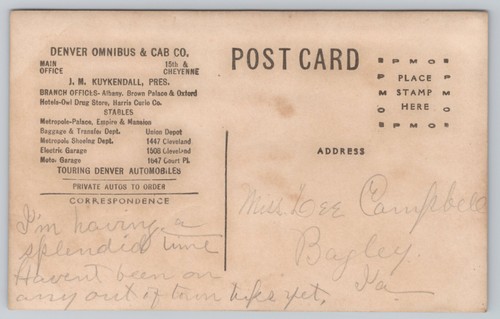 DENVER OMNIBUS & CAB CO.
MAIN OFFICE 15th & CHEYENNE
J. M. KUYKENDALL, PRES.
BRANCH OFFICES- Albany, Brown Palace & Oxford
Hotels-Owl Drug Store, Harris Curio Co.
STABLES
Metropole-Palace, Empire & Mansion
Baggage & Transfer Dept. Union Depot
Metropole Shoeing Dept. 1447 Cleveland
Electric Garage 1508 Cleveland
Moto. Garage 1647 Court Pl.
TOURING DENVER AUTOMOBILES
PRIVATE AUTOS TO ORDER
CORRESPONDENCE
I'm having a
splendid time
Havent been on
any out of town trips yet.
POST CARD
PLACE
STAMP
HERE
ADDRESS
Miss Dee Campbell
Bagley
Ia.